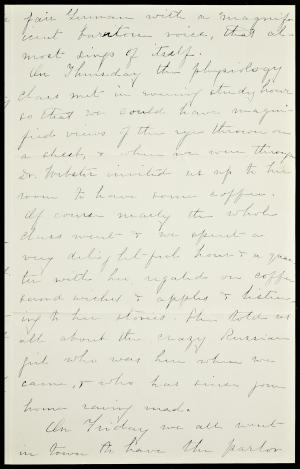 fair German with a magnifi
cent baratone voice, that al-
most sings of itself.
On Thursday the physiology
class met in evening study hour
so that we could have magni-
fied views of the eye thrown on
a sheet, & when we were through
Dr. Webster invited us up to her
room to have some coffee.
Of course nearly the whole
class went & we spent a
very delightful hour & a quar
ter with her regaled on coffee
sandwiches & apples & listen-
ing to her stories. She told us
all about the crazy Russian
girl who was here when we
came, & who has since gone
home raving mad.
On Friday we all went
in town to have the parlor